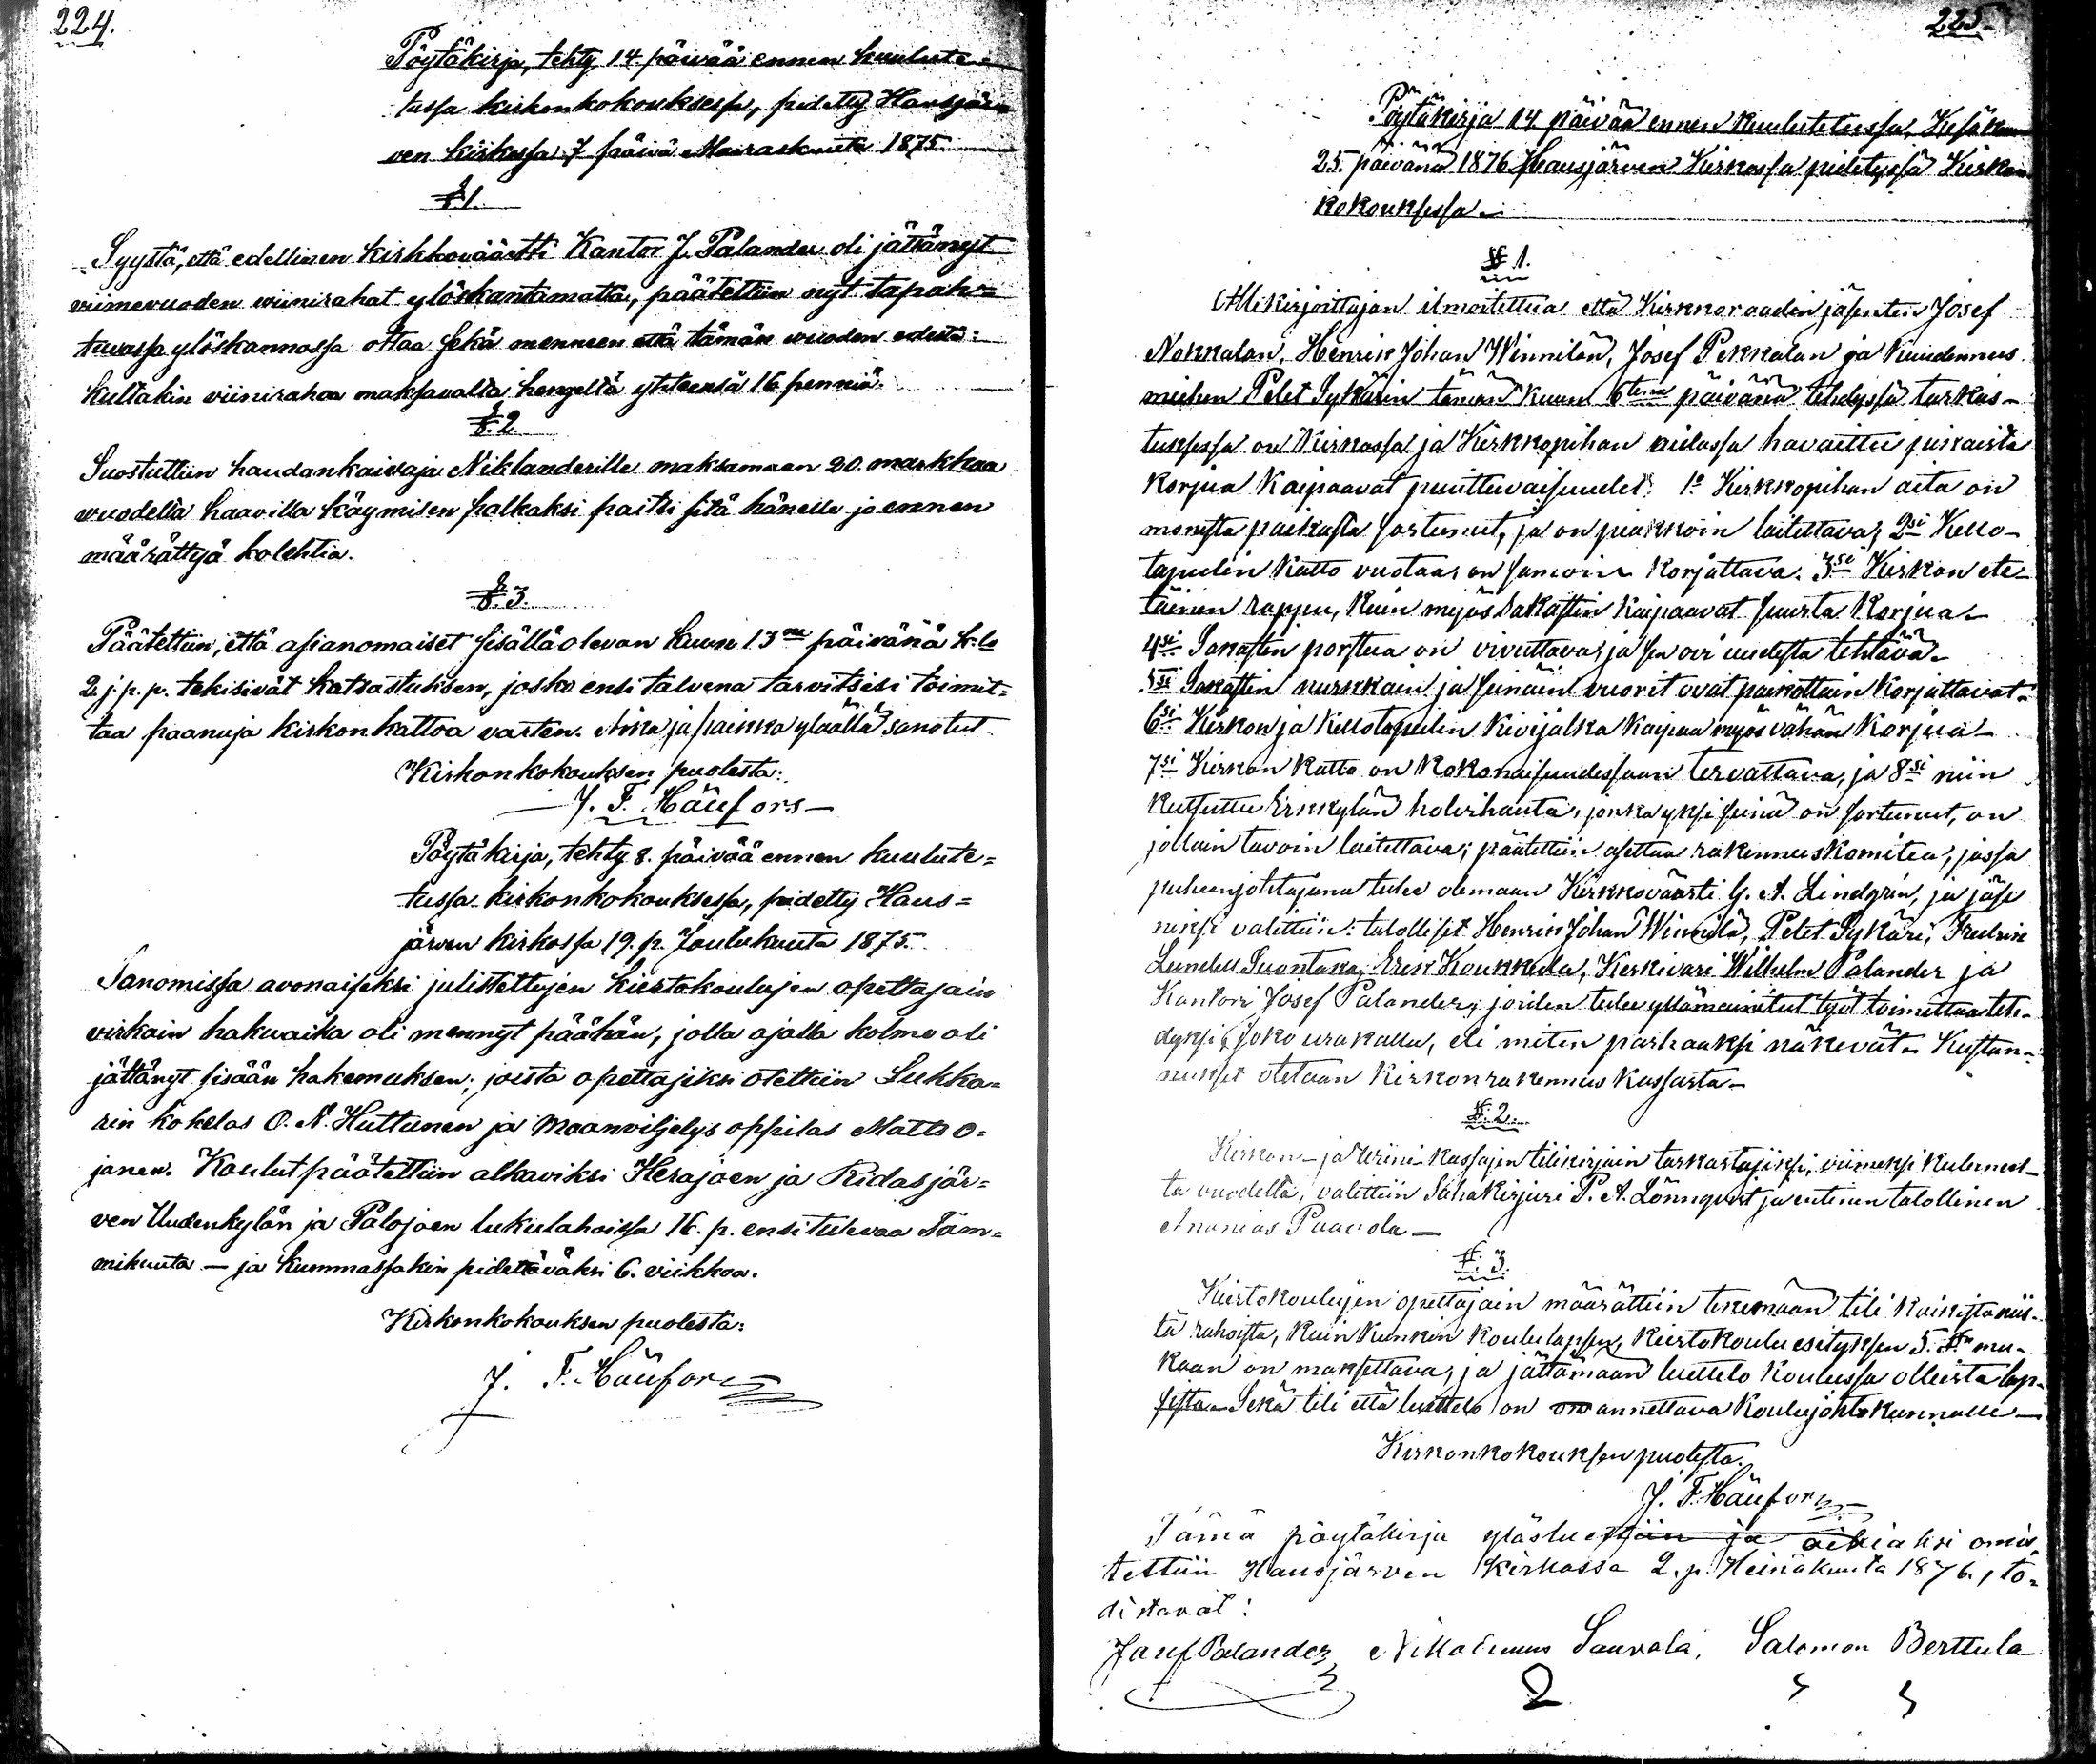 224.
Pöytäkirja, tehty 14 päivää ennen kuulute=
tussa kirkonkokouksessa, pidetty Hausjär=
ven kirkossa 7 päivä Marraskuuta 1875.
§.1.
Syystä, että edellinen kirkkoväärtti Kantor J. Palander oli jättänyt
viimevuoden viinirahat ylöskantamatta, päätettiin nyt tapah=
tuvassa ylöskannossa ottaa sekä menneen että tämän vuoden edestä:
kultakin viinirahaa maksavalta hengeltä yhteensä 16 penniä.
§.2.
Suostuttiin haudankaivaja Niklanderille maksamaan 20 markkaa
vuodelta haavilla käymisen palkaksi paitsi sitä hänelle jo ennen
määrättyä kolehtia.
§.3.
Päätettiin, että asianomaiset sisälläolevan kuun 13na päivänä k:lo
2 j.p.p. tekisivät katsastuksen, josko ensi talvena tarvitsisi toimit=
taa paanuja kirkon kattoa varten. Aika ja paikka ylläällä sanotut.
Kirkonkokouksen puolesta:
J. F. Häufors
Pöytäkirja, tehty 8. päivää ennen kuulute=
tussa kirkonkokouksessa, pidetty Haus=
järven kirkossa 19. p. Joulukuuta 1875.
Sanomissa avonaiseksi julistettujen kiertokoulujen opettajain
virkain hakuaika oli mennyt päähän, jolla ajalla kolme oli
jättänyt sisään hakemuksen; joista opettajiksi otettiin Lukka=
rin kokelas O. N. Huttunen ja maanviljelys oppilas Matts O=
janen. Koulut päätettiin alkaviksi Herajoen ja Ridasjär=
ven Uudenkylän ja Palojoen lukulahoissa 16. p. ensitulevaa Tam=
mikuuta — ja kummassakin pidettäväksi 6. viikkoa.
Kirkonkokouksen puolesta:
J. F. Häufors
225.
Pöytäkirja 14 päivää ennen kuulutetussa, Kesäkuun
25. päivänä 1876 Hausjärven Kirkossa pidetyssä Kirkon
kokouksessa.
§ 1.
Allekirjoittajan ilmoitettua että Kirkkoraadin jäsenten Josef
Nokkalan, Henrik Johan Winnilän, Josef Pekkalan ja kuudennus
miehen Petet Sykärin tämän kuun 6tena päivänä tehdyssä tarkas-
tuksessa on Kirkossa ja Kirkkopihan aidassa havaittu
korjua kaipaavat puuttuvaisuudet: 1o Kirkkopihan aita on
monesta paikasta sortunut, ja on piakkoin laitettava; 2si Kello-
tapulin katto vuotaa, on samoin korjattava. 3si Kirkon ete-
läinen rappu, kuin myös Sakastin kaipaavat suurta korjua-
4si Sakastin porstua on vivuttava, ja sen ovi uudesta tehtävä-
5si Sakastin nurkkain ja seinäin vuorit ovat paikottain korjattavat-
6si Kirkon ja Kellotapulin kivijalka kaipaa myös vähän korjua-
7si Kirkon katto on kokonaisuudessaan tervattava, ja 8si niin
kutsuttu Erkkylän holvihauta, jonka yksi seinä on sortunut, on
jollain tavoin laitettava; päätettiin asettaa rakennuskomitea, jossa
puheenjohtajana tulee olemaan Kirkkoväärti G. A. Lindgrin, ja jäse
niksi valittiin: talolliset Henrik Johan Winnilä, Petet Sykäri, Fredrik
Lundell Suontaka, Erik Koukkula, Kerkivari Wilhelm Palander ja
Kantori Josef Palander, joiden tulee yllämainitut työt toimittaa teh-
dyksi joko urakalla, eli miten parhaaksi näkevät. Kustan-
nukset otetaan Kirkonrakennus kassasta-
§.2.
Kirkon- ja Wiini-kassajen tilikirjain tarkastajiksi, viimeksi kuluneel-
ta vuodelta, valittiin Sahakirjuri P. A. Lönnqvist ja entinen talollinen
Ananias Paavola —
§. 3.
Kiertokoulujen opettajain määrättiin tekemään tili kaikista niis-
tä rahoista, kuin kunkin koululapsen, kiertokoulu esityksen 5. §n mu-
kaan on maksettava, ja jättämään luettelo koulussa olleista lap-
sista- Sekä tili että luettelo on on annettava Koulujohtokunnalle —
Kirkonkokouksen puolesta.
J. F. Häufors
Tämä pöytäkirja ylösluettiin ja oikiaksi omis
tettiin Hausjärven kirkossa 2. p. Heinäkuuta 1876, to=
distavat:
Josef Palander, Nikodemus Sauvala, Salomon Berttula